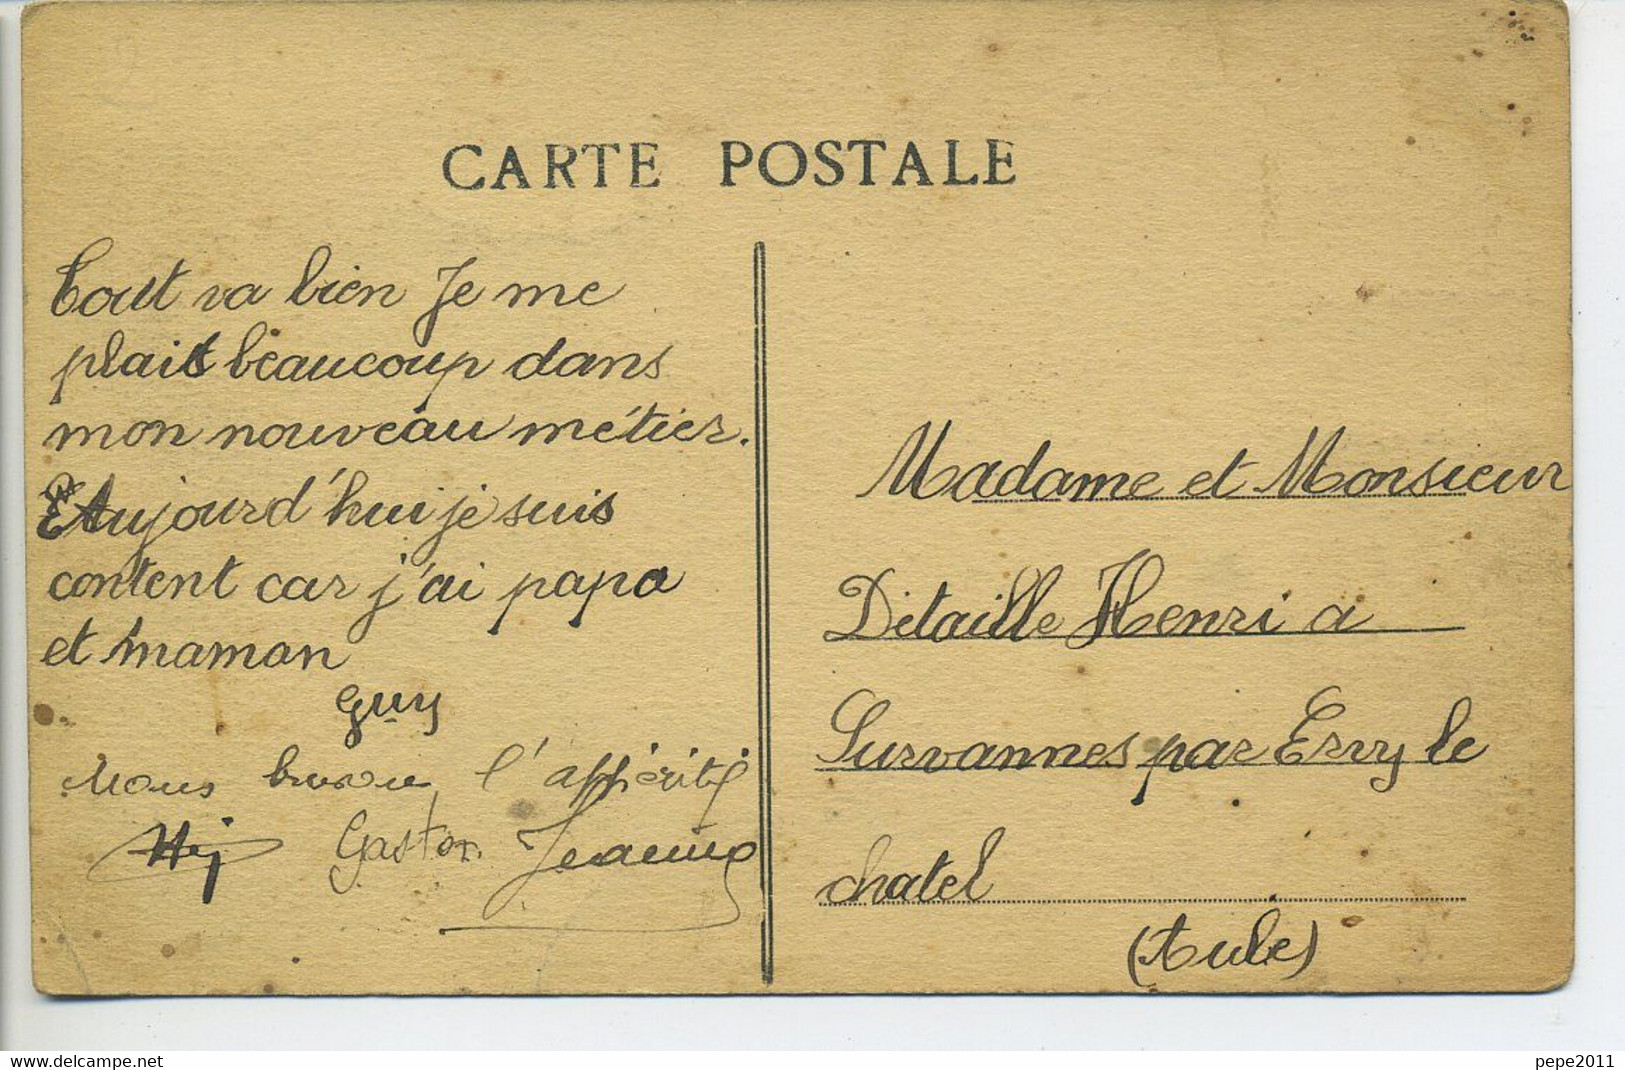 CARTE POSTALE
Tout va bien Je me
plait beaucoup dans
mon nouveau métier.
Aujourd'hui je suis
content car j'ai papa
et maman
Guy
Nous buvons l'appéritif
Gaston Jeanine
Madame et Monsieur
Détaille Henri a
Survannes par Ervy le
chatel
(Aube)
www.delcampe.net
pepe2011